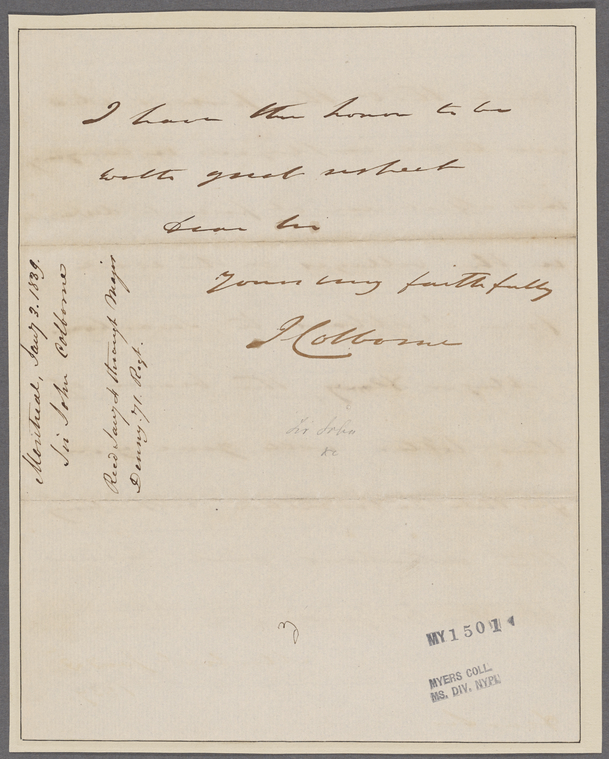 I have the honor to be
with great respect
Dear Sir
Yours very faithfully
J Colborne
Montreal, Jany 3. 1839.
Sir John Colborne
Recd Jany 4 through Major
Denny. 71. Regt.
Sir John
MY1501
MYERS COLL.
MS. DIV. NYPL